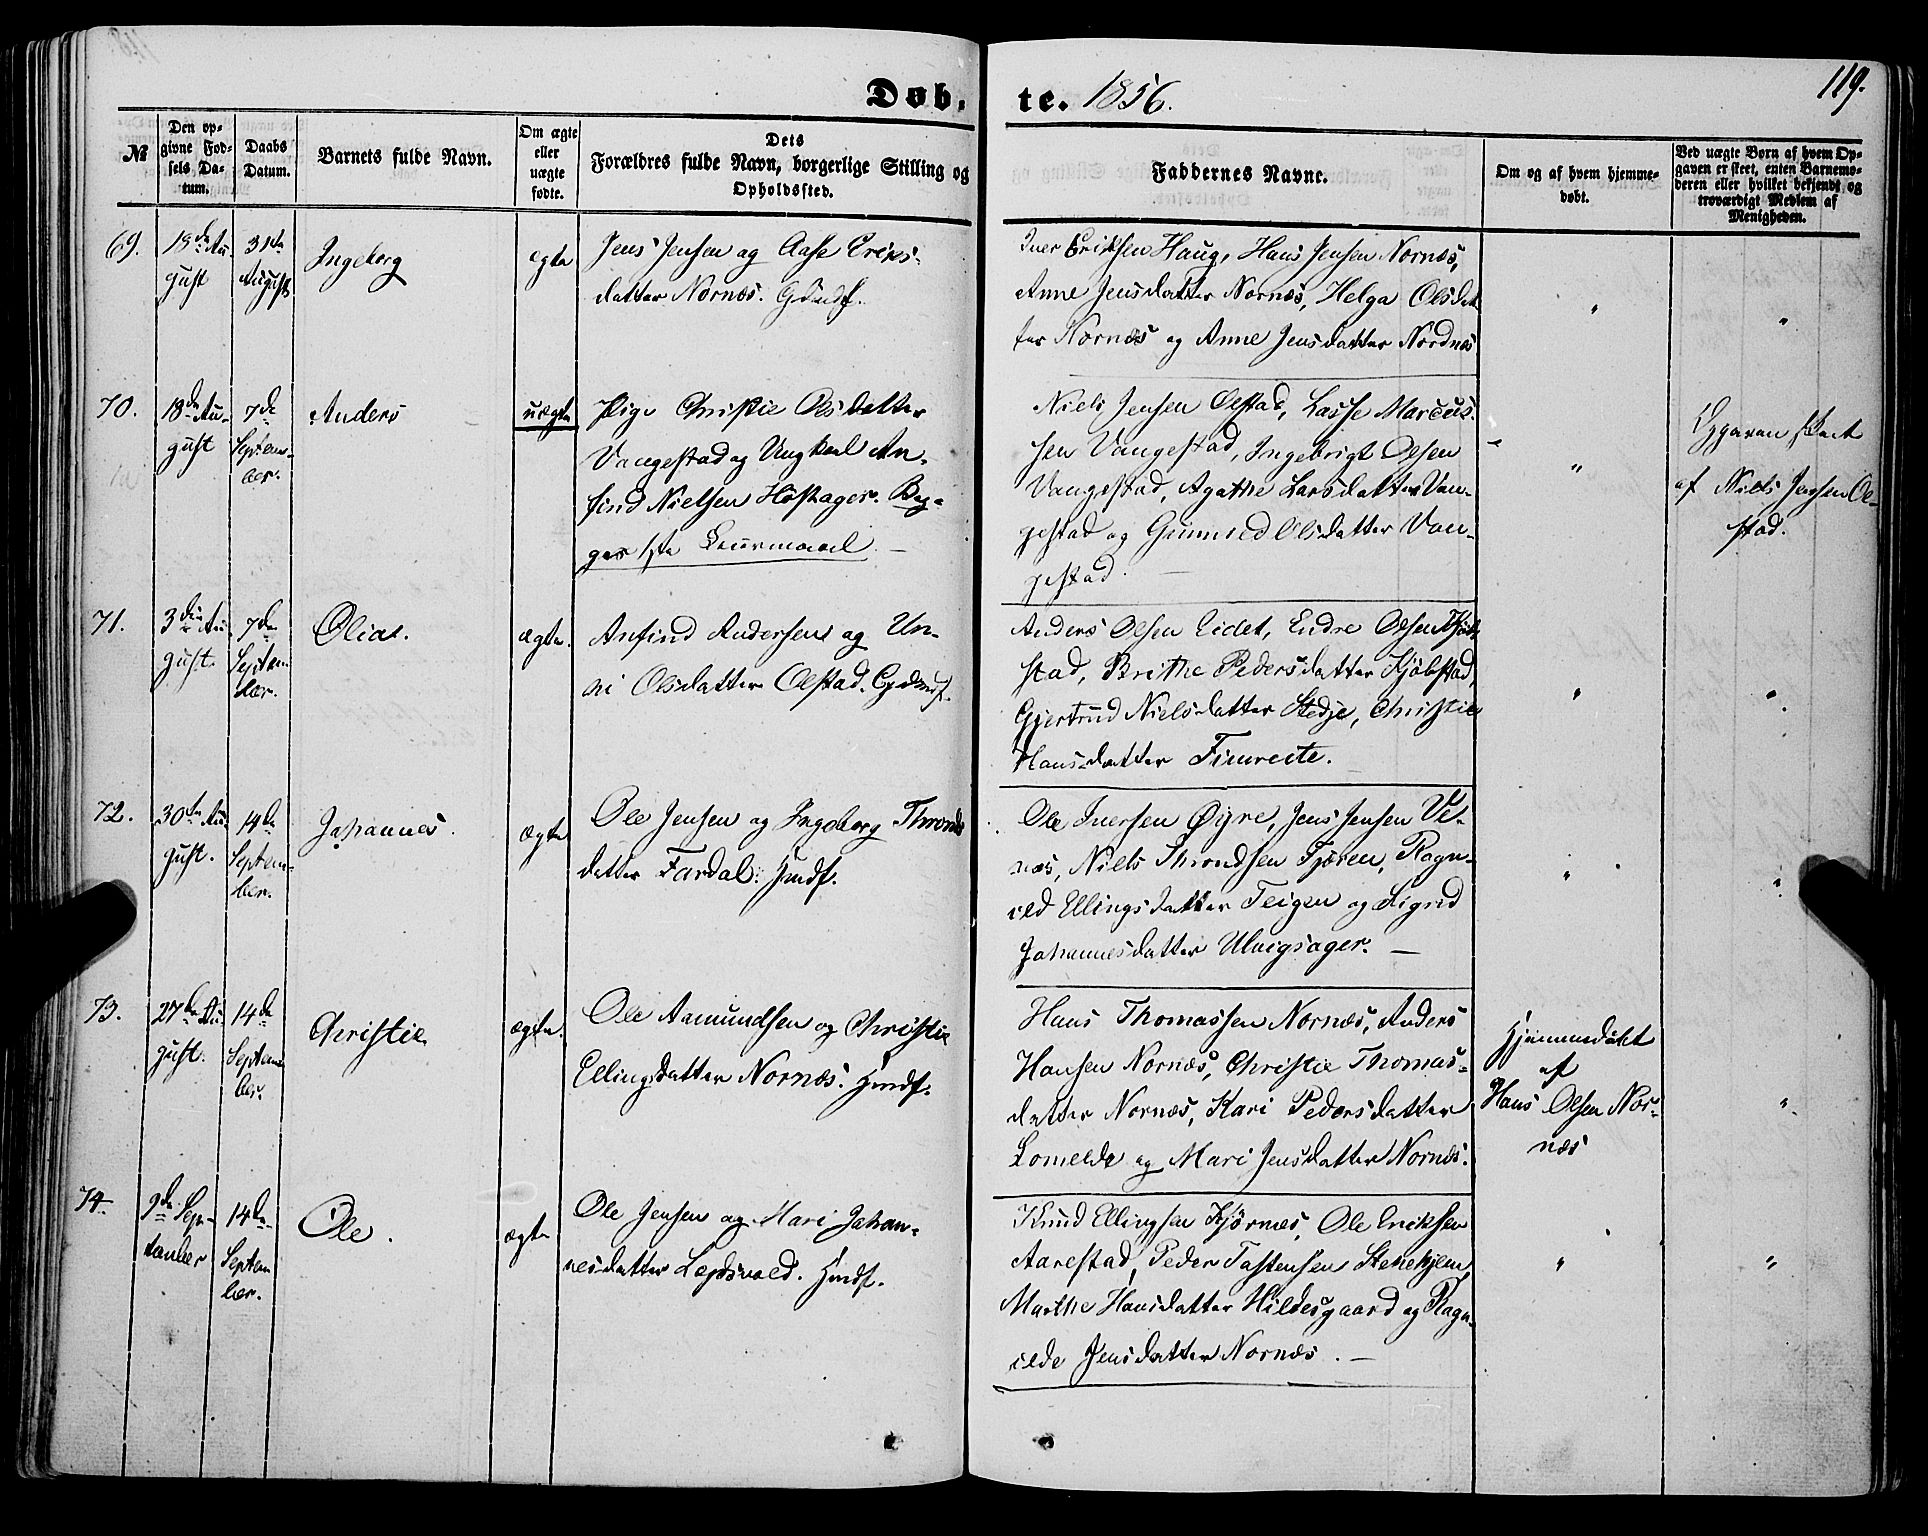 119.
Døb. te. 1856.
№
Den op-
givne Fød-
sels Da-
tum.
Daabs
Datum.
Barnets fulde Navn.
Om ægte
eller
uægte
fødte.
Dets
Forældres fulde Navn, borgerlige Stilling og
Opholdssted.
Faddernes Navne.
Om og af hvem hjemme-
døbt.
Ved uægte Børn af hvem Op-
gaven er skeet, enten Barnemo-
deren eller hvilket bekjendt og
troværdigt Medlem af
Menigheden.
69.
19de Au-
gust
31te
August
Ingeborg
ægte
Jens Jensen og Aase Eriks-
datter Nornæs. Gdmdf.
Iver Eriksen Haug, Hans Jensen Nornæs,
Anne Jensdatter Nornæs, Helga Olsdat-
ter Nornæs og Anne Jensdatter Nordnæs
"
"
70.
18de Au-
gust
7de
Septem-
ber.
Anders
uægte
Pige Christie Olsdatter
Vangestad og Ungkarl An-
find Nielsen Hostager. Beg-
ges 1ste Leiermaal. —
Niels Jensen Olstad, Lasse Marcus-
sen Vangestad, Ingebrigt Olsen
Vangestad, Agathe Larsdatter Van-
gestad og Gunnild Olsdatter Van-
gestad. —
"
Opgaven skeet
af Niels Jensen Ol-
stad.
71.
3die Au-
gust.
7de
Septem-
ber.
Olia.
ægte.
Anfind Andersen og Un-
ni Olsdatter Olstad. Gdmdf.
Anders Olsen Eidet, Endre Olsen Kjøb-
stad, Brithe Pedersdatter Kjøbstad,
Gjertrud Nielsdatter Stedje, Christie
Hansdatter Fimreite.
"
"
72.
30te Au-
gust.
14de
Septem-
ber.
Johannes.
ægte
Ole Jensen og Ingeborg Thronds
datter Fardal. Hmdf.
Ole Iversen Øyre, Jens Jensen Ve-
næs, Niels Throndsen Fjøren, Ragn-
ild Ellingsdatter Teigen og Sigrid
Johannesdatter Ulvigsager. —
"
"
73.
27de Au-
gust.
14de
Septem-
ber.
Christie
ægte.
Ole Aamundsen og Christie
Ellingsdatter Nornæs. Hmdf.
Hans Thomassen Nornæs, Anders
Hansen Nornæs, Christie Thomas-
datter Nornæs, Kari Pedersdatter
Lomelde og Mari Jensdatter Nornæs.
Hjemmedøbt
af
Hans Olsen Nor-
næs
"
74.
9de Sep-
tember
14de
Septem
ber.
Ole.
ægte
Ole Jensen og Mari Johan-
nesdatter Lepsvold. Hmdf.
Knud Ellingsen Kjørnæs, Ole Eriksen
Aarestad, Peder Tostensen Stenehjem
Marthe Hansdatter Hildesgaard og Ragn-
ilde Jensdatter Nornæs. —
"
"